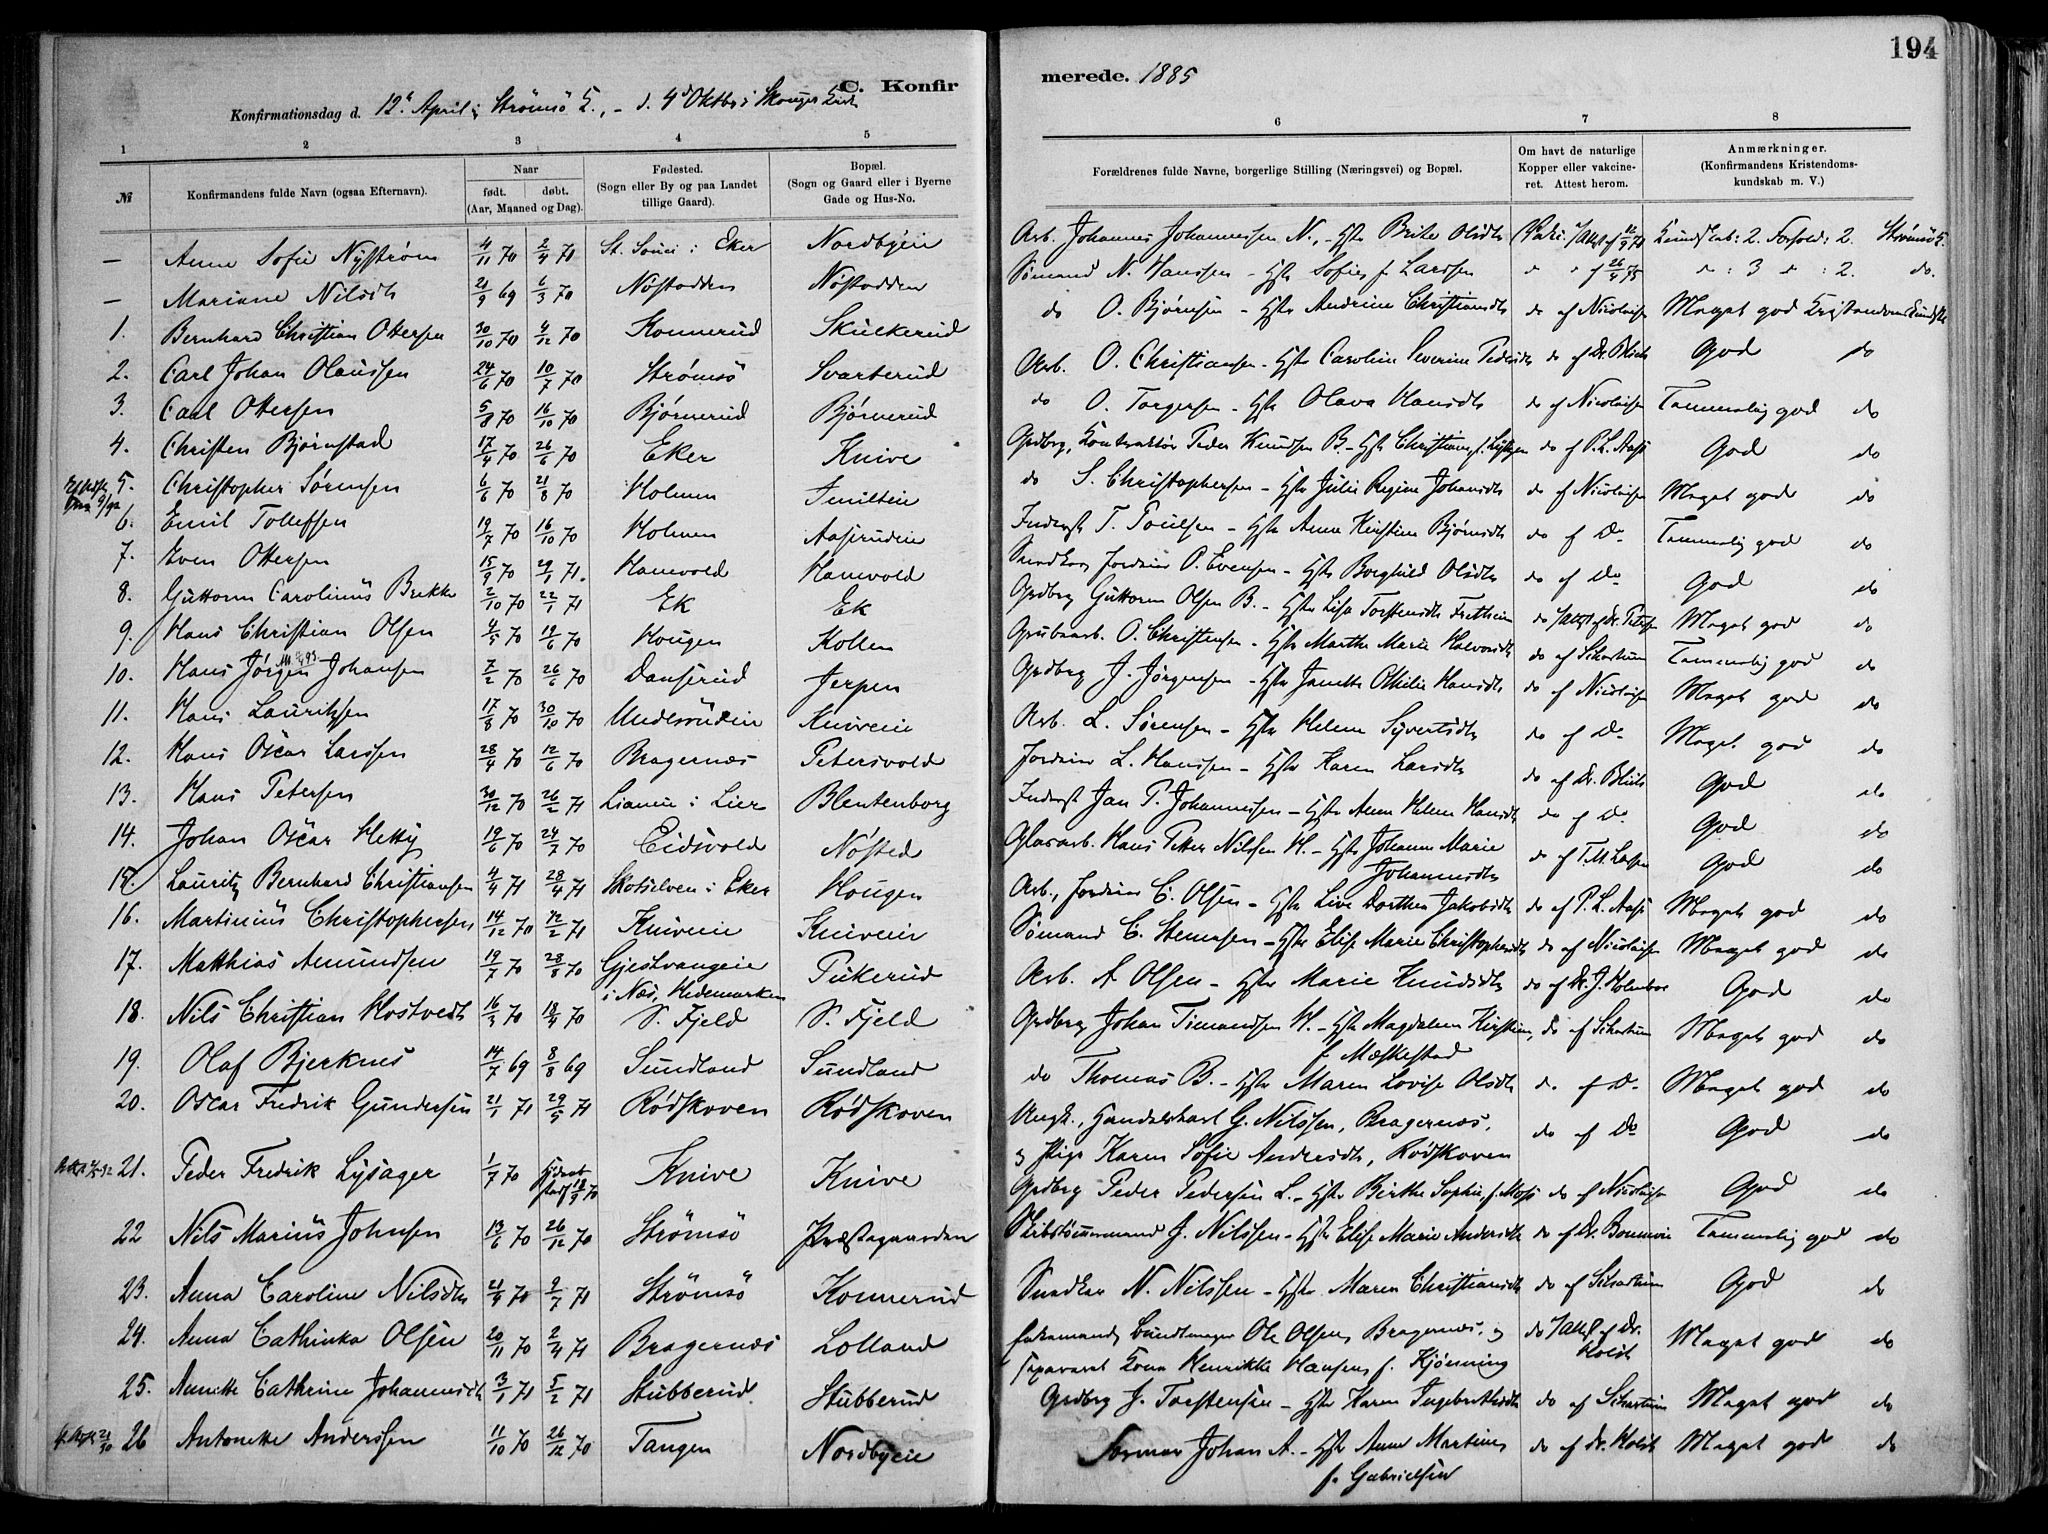 194
C. Konfirmerede. 1885
Konfirmationsdag d. 12te April i Strömsö K., - d. 4de Oktbr i Skouger Kirke
1 2 3 4 5 6 7 8
№
Konfirmandens fulde Navn (ogsaa Efternavn).
Naar
født. døbt.
(Aar, Maaned og Dag).
Fødested.
(Sogn eller By og paa Landet
tillige Gaard).
Bopæl.
(Sogn og Gaard eller i Byerne
Gade og Hus-No.
Forældrenes fulde Navne, borgerlige Stilling (Næringsvei) og Bopæl.
Om havt de naturlige
Kopper eller vakcine-
ret. Attest herom.
Anmærkninger.
(Konfirmandens Kristendoms-
kundskab m. V.)
— Anne Sofie Nyström 4/11 70 2/4 71 St. Souci i Eker Nordbyeie Arb. Johannes Johannessen N., - Hstr Brite Olsdtr Vakc. Kundskab: 2. Forhold: 2. Strömsö K.
— Mariane Nilsdtr 21/9 69 6/3 70 Nøstodden Nøstodden Sømand N. Hanssen - Hstr Sofie f. Larssen " " af 26/4 75 " : 3 " : 2. do.
1. Bernhard Christian Ottersen 30/10 70 4/12 70 Konnerud Skulkerud do O. Bjørnsen - Hstr Andrine Christiansdtr do af Nicolaisen Meget god Kristendomskundsk
2. Carl Johan Olaussen 24/6 70 10/7 70 Strømsö Svarterud Arb. O. Christiansen - Hstr Caroline Severine Pedersdtr do af Dr. Blich God do
3. Carl Ottersen 5/8 70 16/10 70 Bjørnerud Bjørnerud do O. Torgersen - Hstr Olava Hansdtr do af Nicolaisen Temmelig god do
4. Christen Bjørnstad 17/4 70 26/6 70 Eker Knive Grdbrg, Kontraktör Peder Knudsen B. - Hstr Christiane f. do af P. L. Aass God do
5. Christopher Sørensen 6/6 70 21/8 70 Holmen Smiltein do S. Christophersen - Hstr Julie Regine Johansdtr do af Nicolaisen Meget god do
6. Emil Tollefsen 19/7 70 16/10 70 Holmen Aaserudeie Inderst T. Poulsen - Hstr Anne Kirstine Bjørnsdtr do af Do Temmelig god do
7. Even Ottersen 15/9 70 29/1 71. Hanevold Hanevold Snedker Jordeier O. Evensen - Hstr Borghild Olsdtr do af Do God do
8. Guttorm Carolinus Brekke 2/10 70 22/1 71 Ek Ek Grdbrg Guttorm Olsen B. - Hstr Lisa Torstensdtr Fretheim do Attest af Dr. Petersen Meget god do
9. Hans Christian Olsen 4/5 70 19/6 70 Hougen Kollen Grubearb. O. Christensen - Hstr Marthe Marie Halvorsdtr do af Schartum Temmelig god do
10. Hans Jörgen Johansen 7/2 70 26/6 70 Danserud Jerpen Grdbrg J. Jörgensen - Hstr Janette Othilie Hansdtr do af Nicolaisen Meget god do
11. Hans Lauritzsen 17/8 70 30/10 70 Underrudeie Kniveeie Arb. L. Sørensen - Hstr Helene Syvertsdtr do af Do Meget god do
12. Hans Oscar Larssen 28/4 70 12/6 70 Bragernæs Petersvold Jordeier L. Hanssen - Hstr Karen Larsdtr do af Dr. Blich God do
13. Hans Petersen 30/12 70 26/2 71 Lianeie i Lier Blentenborg Inderst Jan P. Johannessen - Hstr Anne Helene Hansdtr do af Do God do
14. Johan Oscar Hetty 19/6 70 24/7 70 Eidsvold Nøsted Glasarb. Hans Peter Nilssen H. - Hstr Johanne Marie Johannesdtr do af God do
15. Lauritz Bernhard Christiansen 4/4 71 28/4 71 Skotselven i Eker Hougen Arb., Jordeier C. Olsen - Hstr Live Dorthea Jakobsdtr do af P. L. Aass Meget god do
16. Martinius Christophersen 14/12 70 12/2 71 Kniveeie Kniveeie Sømand C. Stenersen - Hstr Elise Marie Christophersdtr do af Nicolaisen Meget god do
17. Matthias Amundsen 19/7 70 28/8 70 Gjestvangeie i Næs, Hedemarken Pukerud Arb. A Olsen - Hstr Marie Knudsdtr do af Dr. J. Holmboe God do
18. Nils Christian Hostvedt 16/3 70 18/4 70 S. Fjeld S. Fjeld Grdbrg Johan Timandsen H. - Hstr Magdalene Kirstine, f Mæskestad do af Schartum Meget god do
19. Olaf Bjerknes 14/7 69 8/8 69 Sundland Sundland do Thomas B. - Hstr Maren Lovise Olsdtr do af Do Meget god do
20. Oscar Fredrik Gundersen 21/1 71 29/5 71 Rödskoven Rödskoven Ungk., Handelskarl G. Nilssen, Bragernæs,
og Pige Karen Sofie Andersdtr, Rödskoven do af Do God do
21. Peder Fredrik Lysager 1/7 70 18/9 70 Knive Knive Grdbrg Peder Pedersen L. - Hstr Birthe Sophie, f. Moss do af Nicolaisen God do
22 Nils Marius Johnsen 13/6 70 26/12 70 Strömsö Præstegaarden Skibstömmermand J. Nilssen - Hstr Elise Marie Andersdtr do af Dr. Bonnevie Temmelig god do
23. Anna Caroline Nilsdtr 21/4 70 2/7 71 Strömsö Konnerud Snedker N. Nilssen - Hstr Maren Christiansdtr do af Schartum God do
24. Anna Cathinka Olsen 20/11 70 2/4 71 Bragernæs Lolland Ole Olsen, Bragernæs, og
separeret Kone Henrikke Hansen f. Kjønning do Attest af Dr. Holst Meget god do
25. Annette Cathrine Johannesdtr 3/1 71 5/2 71 Stubberud Stubberud Grdbrg J. Torstensen - Hstr Karen Ingebrethsdtr do af Schartum Meget god do
26 Antonette Anderssen 11/10 70 26/12 70 Tangen Nordbyeie Former Johan A. - Hstr Anne Martine f. Gabrielsen do af Dr. Holst Meget god do